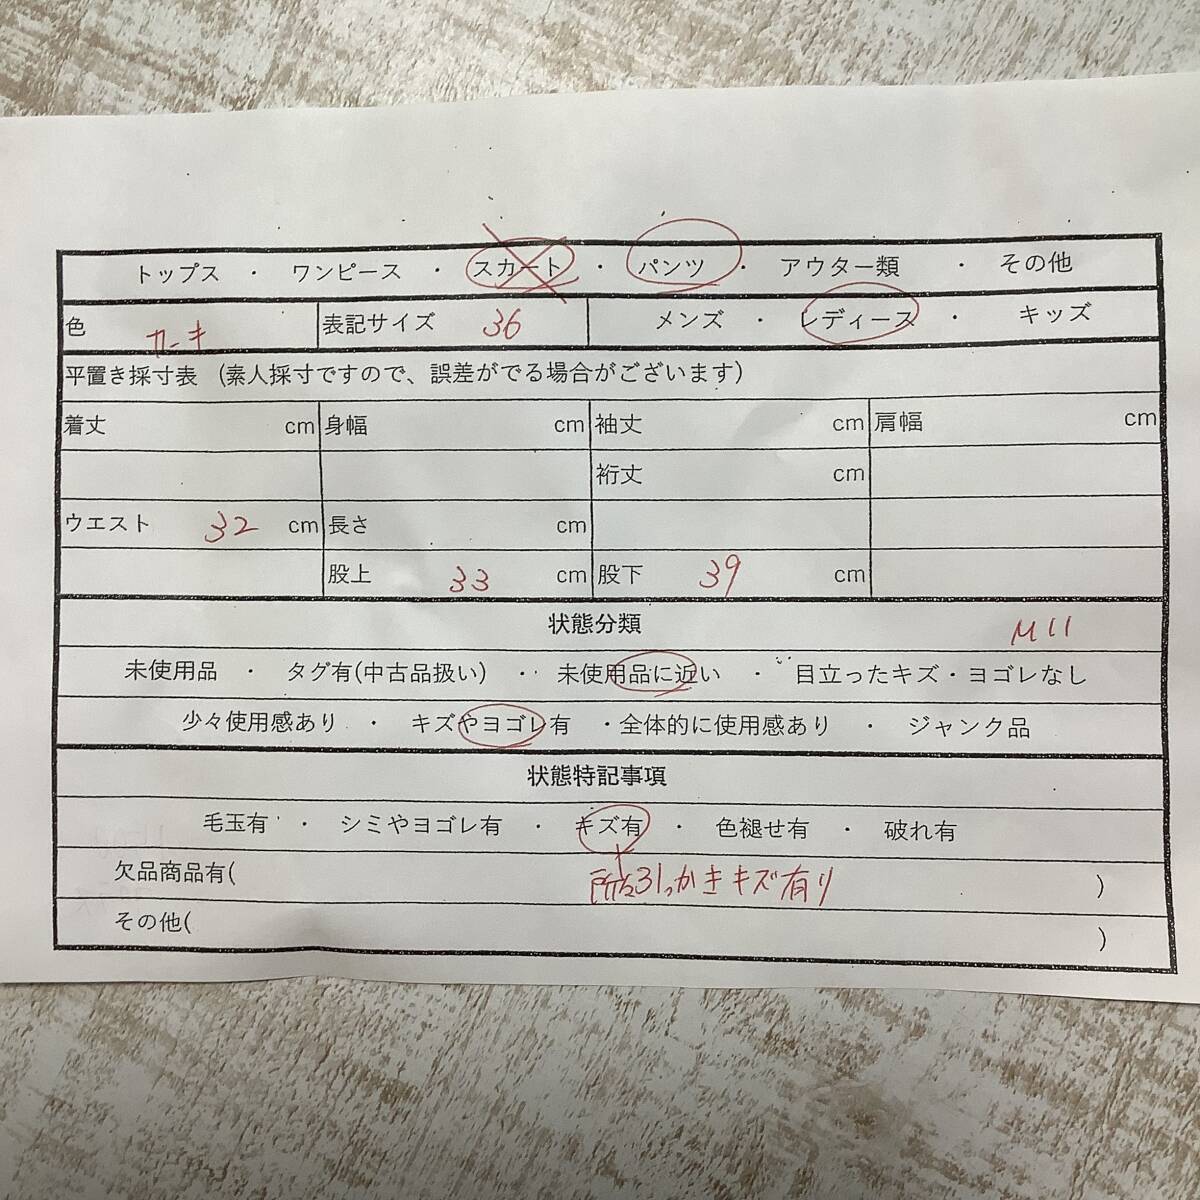 トップス ・ ワンピース ・ スカート ・ パンツ ・ アウター類 ・ その他
色 カーキ 表記サイズ 36 メンズ ・ レディース ・ キッズ
平置き採寸表 (素人採寸ですので、誤差がでる場合がございます)
着丈 cm 身幅 cm 袖丈 cm 肩幅 cm
裄丈 cm
ウエスト 32 cm 長さ cm
股上 33 cm 股下 39 cm
状態分類
M11
未使用品 ・ タグ有(中古品扱い) ・ 未使用品に近い ・ 目立ったキズ・ヨゴレなし
少々使用感あり ・ キズやヨゴレ有 ・全体的に使用感あり ・ ジャンク品
状態特記事項
毛玉有 ・ シミやヨゴレ有 ・ キズ有 ・ 色褪せ有 ・ 破れ有
欠品商品有( 所々引っかきキズ有り )
その他( )